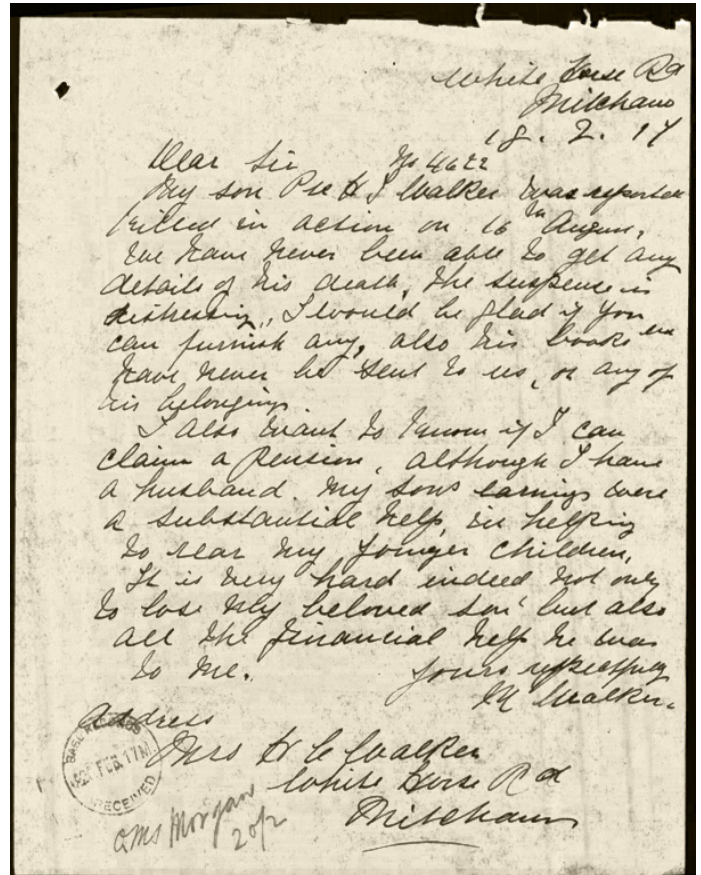 White Horse Rd
Mitcham
18. 2. 17
Dear Sir No 4622
My son Pte H J Walker was reported
killed in action on 16th August,
We have never been able to get any
details of his death, the suspense is
distressing, I would be glad if you
can furnish any, also his books etc
have never be sent to us, or any of
his belongings.
I also want to know if I can
claim a pension, although I have
a husband. My sons earnings were
a substantial help, in helping
to rear my younger children,
It is very hard indeed not only
to lose my beloved son but also
all the financial help he was
to me. Yours respectfully
M Walker.
Address
Mrs H C Walker
White Horse Rd
Mitcham
BASE RECORDS
FEB. 17
RECEIVED
QMS Morgan
20/2